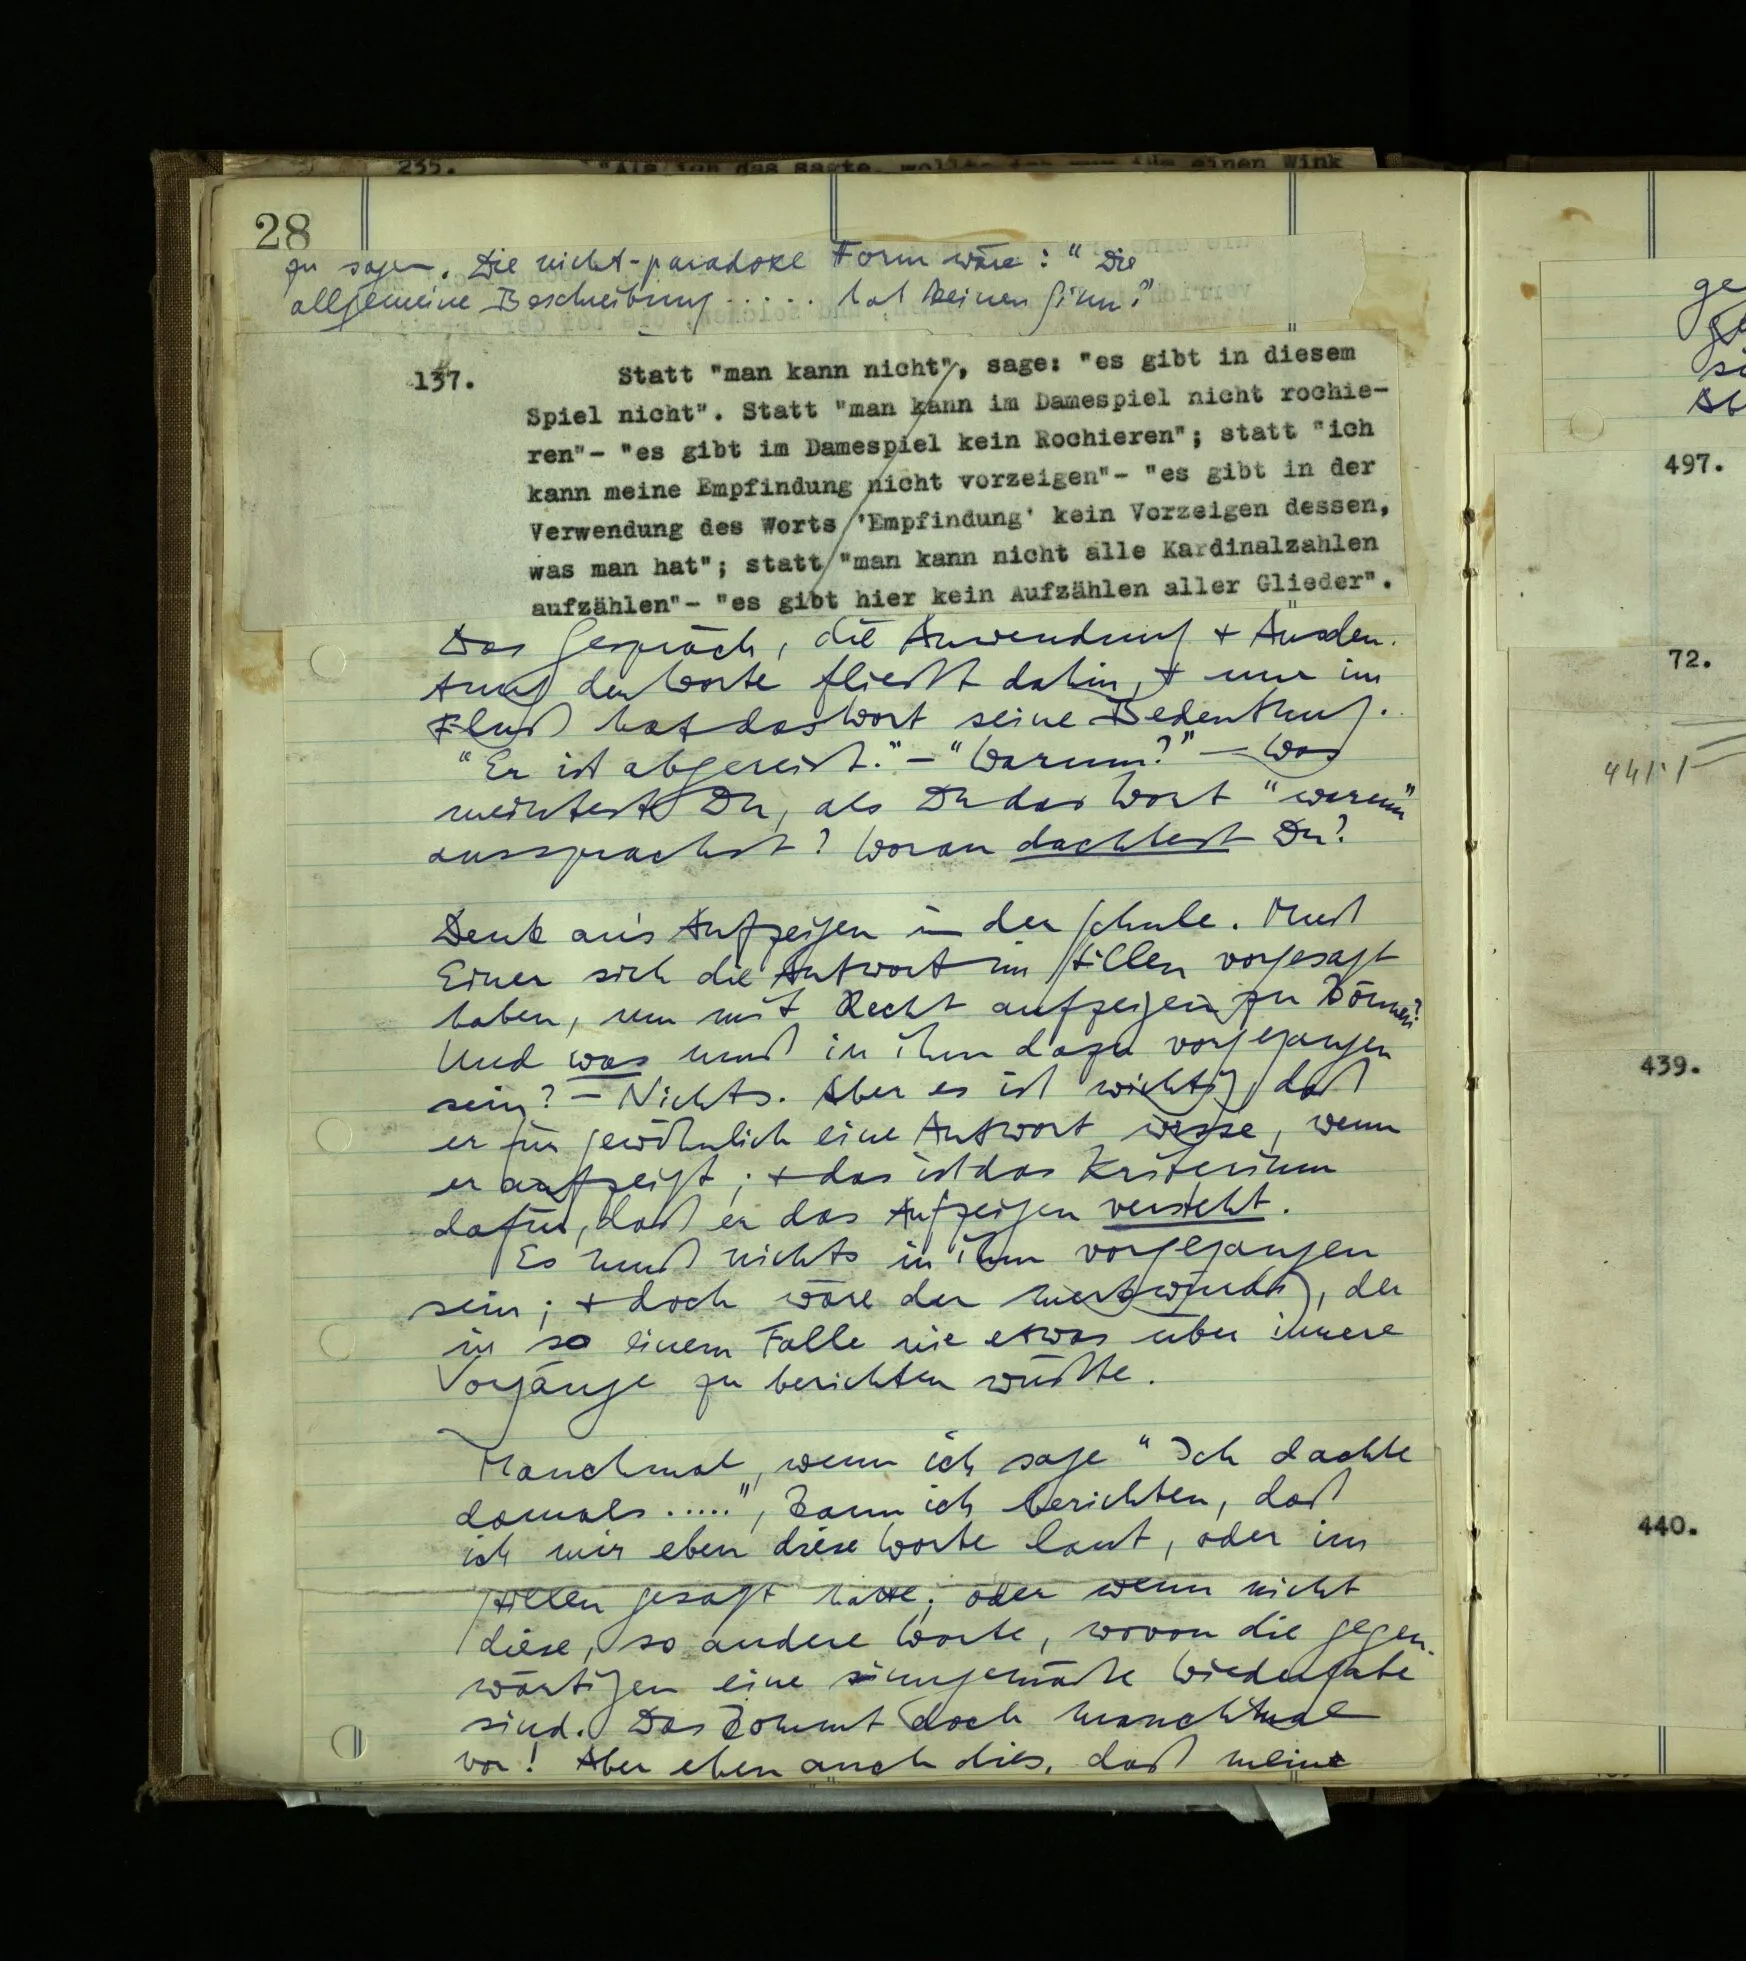 235. "Als ich das sagte, wollte ich nur für einen Wink
28
zu sagen. Die nicht-paradoxe Form wäre: "Die
allgemeine Beschreibung ..... hat keinen Sinn."
137. Statt "man kann nicht", sage: "es gibt in diesem
Spiel nicht". Statt "man kann im Damespiel nicht rochie-
ren"- "es gibt im Damespiel kein Rochieren"; statt "ich
kann meine Empfindung nicht vorzeigen"- "es gibt in der
Verwendung des Worts 'Empfindung' kein Vorzeigen dessen,
was man hat"; statt "man kann nicht alle Kardinalzahlen
aufzählen"- "es gibt hier kein Aufzählen aller Glieder".
Das Gespräch, die Anwendung + Ausdeu-
tung der Worte fließt dahin, + nur im
Fluß hat das Wort seine Bedeutung.
"Er ist abgereist." – "Warum?" – Was
meintest Du, als Du das Wort "warum"
aussprachst? Woran dachtest Du?
Denk an's Aufzeigen in der Schule. Muß
Einer sich die Antwort im Stillen vorgesagt
haben, um mit Recht aufzeigen zu können?
Und was muß in ihm dazu vorgegangen
sein? – Nichts. Aber es ist wichtig, daß
er für gewöhnlich eine Antwort wisse, wenn
er aufzeigt; + das ist das Kriterium
dafür, daß er das Aufzeigen versteht.
Es muß nichts in ihm vorgegangen
sein; + doch wäre der merkwürdig, der
in so einem Falle nie etwas über innere
Vorgänge zu berichten wüßte.
Manchmal, wenn ich sage "Ich dachte
damals .....", kann ich berichten, daß
ich mir eben diese Worte laut, oder im
Stillen gesagt hatte; oder wenn nicht
diese, so andere Worte, wovon die gegen-
wärtigen eine sinngemäße Wiedergabe
sind. Das kommt doch manchmal
vor! Aber eben auch dies, daß meine
ge
si
497.
72.
439.
440.